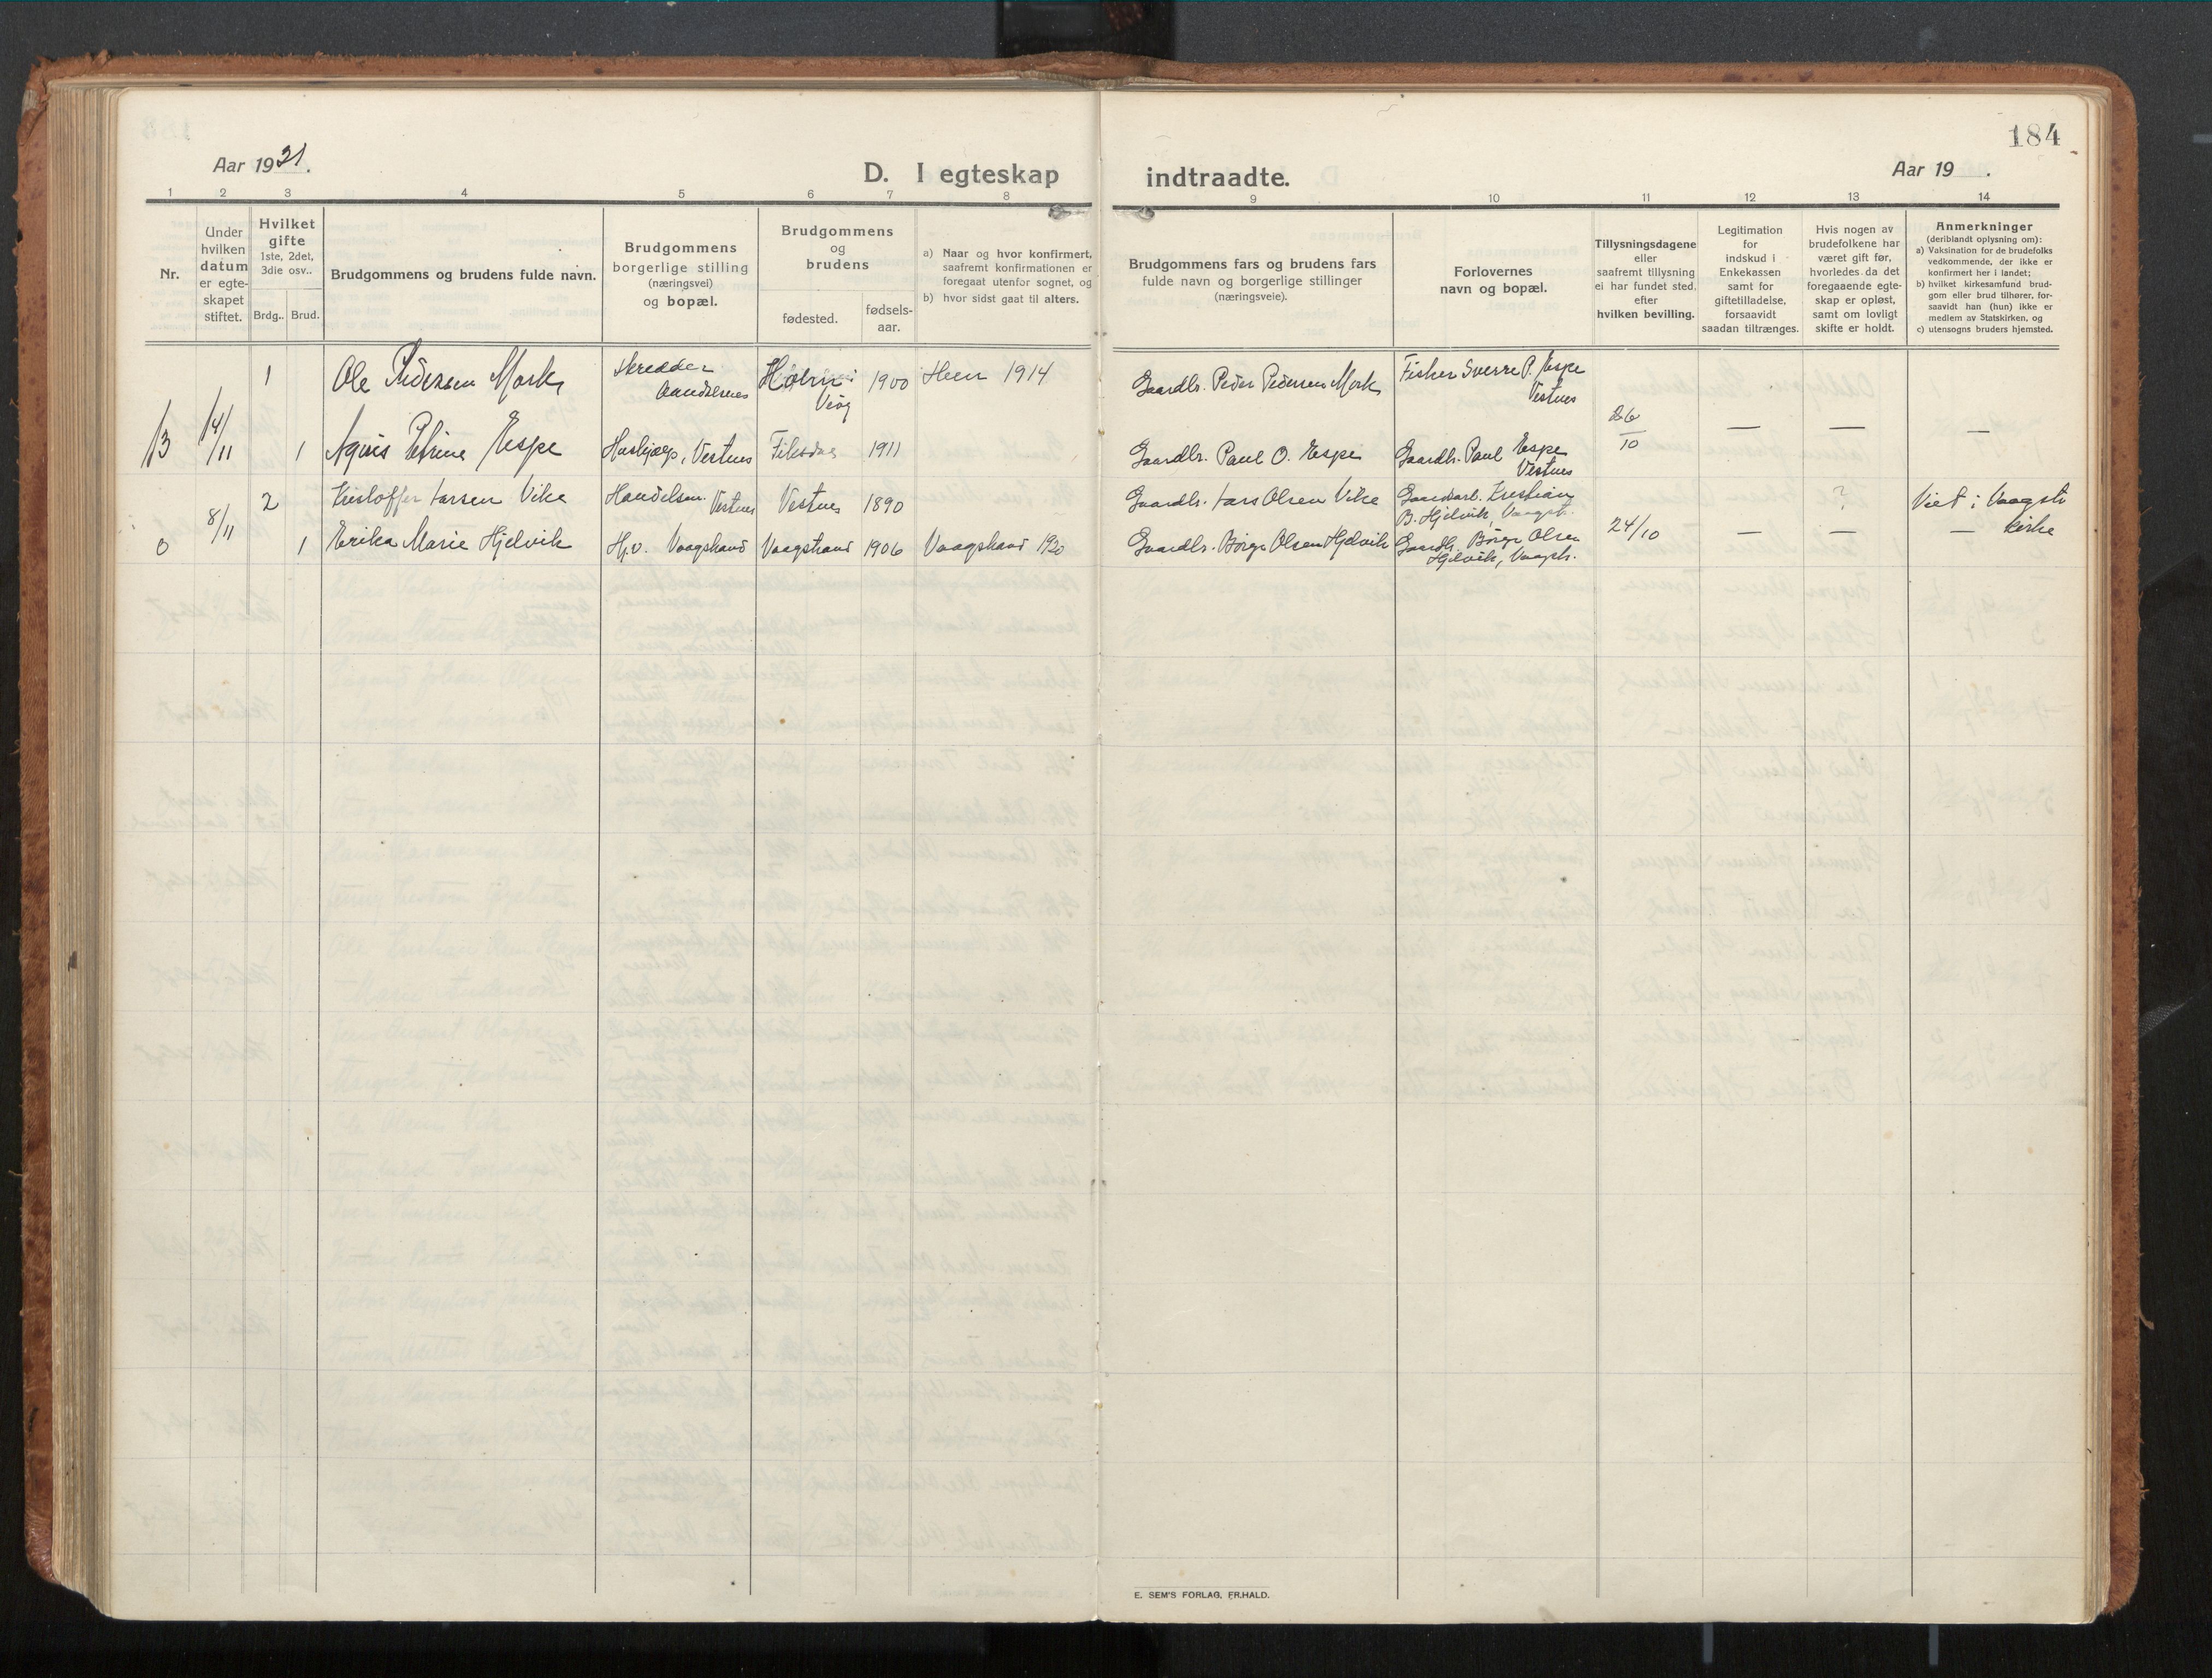 184
Aar 1931.
D. I egteskap indtraadte.
Aar 19 .
1 2 3 4 5 6 7 8 9 10 11 12 13 14
Nr.
Under hvilken datum er egte-skapet stiftet.
Hvilket gifte 1ste, 2det, 3die osv..
Brdg.. Brud.
Brudgommens og brudens fulde navn.
Brudgommens borgerlige stilling (næringsvei) og bopæl.
Brudgommens og brudens
fødested.
fødsels-aar.
a) Naar og hvor konfirmert, saafremt konfirmationen er foregaat utenfor sognet, og
b) hvor sidst gaat til alters.
Brudgommens fars og brudens fars fulde navn og borgerlige stillinger (næringsveie).
Forlovernes navn og bopæl.
Tillysningsdagene eller saafremt tillysning ei har fundet sted, efter hvilken bevilling.
Legitimation for indskud i Enkekassen samt for giftetilladelse, forsaavidt saadan tiltrænges.
Hvis nogen av brudefolkene har været gift før, hvorledes da det foregaaende egte-skap er opløst, samt om lovligt skifte er holdt.
Anmerkninger (deriblandt oplysning om):
a) Vaksination for de brudefolks vedkommende, der ikke er konfirmert her i landet;
b) hvilket kirkesamfund brud-gom eller brud tilhører, for-saavidt han (hun) ikke er medlem av Statskirken, og
c) utensogns bruders hjemsted.
1 Ole Pedersen Mork Skredder Aandalsnes Veøy 1900 Heen 1914 Gaardbr. Peder Pedersen Mork Fisker Sverre P. Espe Vestnes
13 14/11 1 Agnes Petrine Espe Hushjælp, Vestnes 1911 Gaardbr. Paul O. Espe Gaardbr. Paul Espe Vestnes 26/10 — — —
2 Kristoffer Larsen Vike Handelsm. Vestnes Vestnes 1890 Gaardbr. Lars Olsen Vike Gaardarb. Kristian B. Hjelvik, Vaagst. ? Viet i Vaagstr
0 8/11 1 Erika Marie Hjelvik Hj.v. Vaagstrand Vaagstrand 1906 Vaagstrand 1920 Gaardbr. Børge Olsen Hjelvik Gaardbr. Børge Olsen Hjelvik, Vaagstr. 24/10 — — — kirke
E. SEM'S FORLAG, FR.HALD.